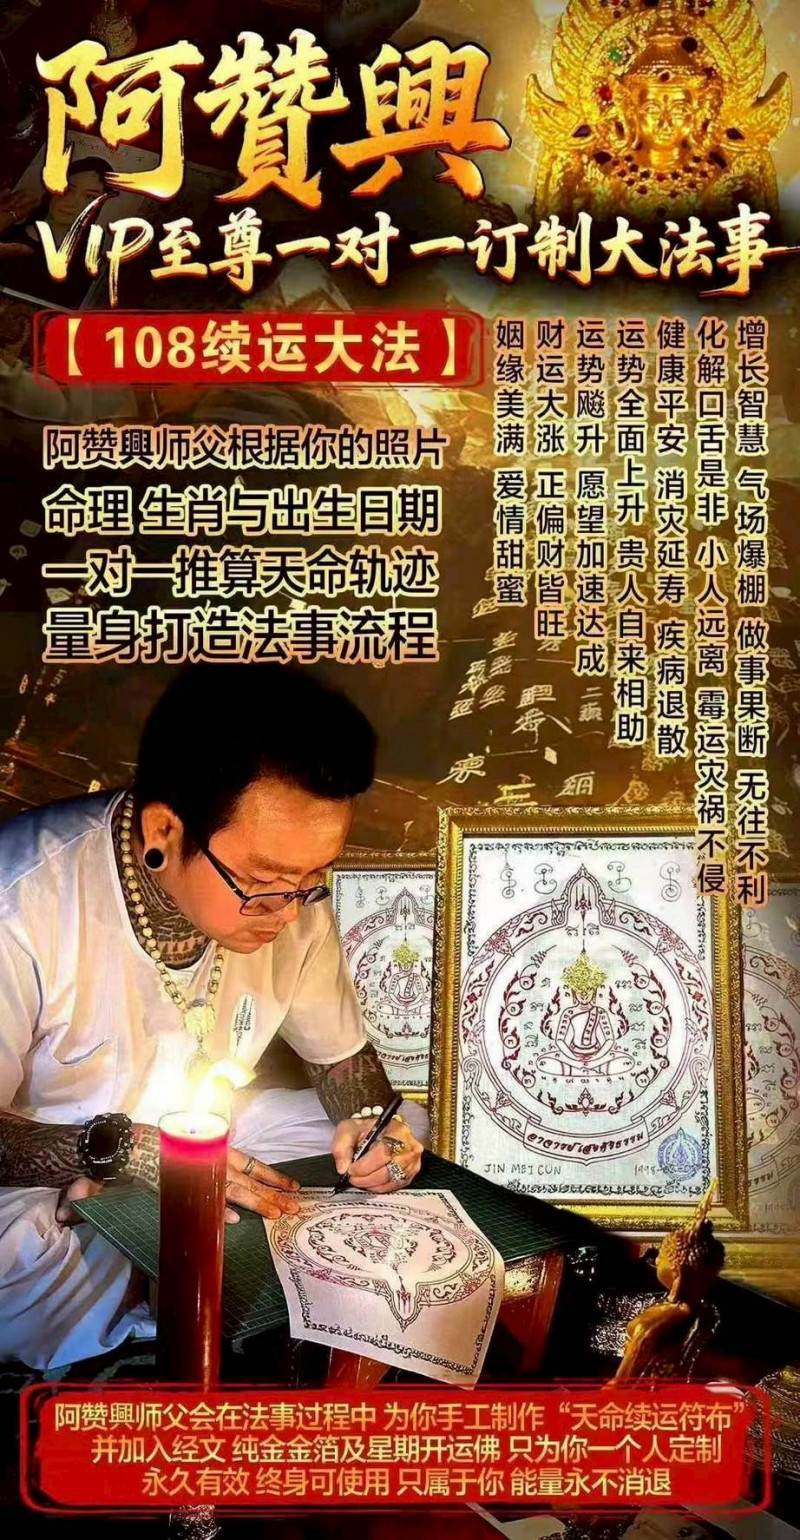 阿赞興
VIP至尊一对一订制大法事
【108续运大法】
阿赞興师父根据你的照片
命理 生肖与出生日期
一对一推算天命轨迹
量身打造法事流程
增长智慧 气场爆棚 做事果断 无往不利
化解口舌是非 小人远离 霉运灾祸不侵
健康平安 消灾延寿 疾病退散
运势全面上升 贵人自来相助
运势飚升 愿望加速达成
财运大涨 正偏财皆旺
姻缘美满 爱情甜蜜
JIN MEI CUN
阿赞興师父会在法事过程中 为你手工制作“天命续运符布”
并加入经文 纯金金箔及星期开运佛 只为你一个人定制
永久有效 终身可使用 只属于你 能量永不消退